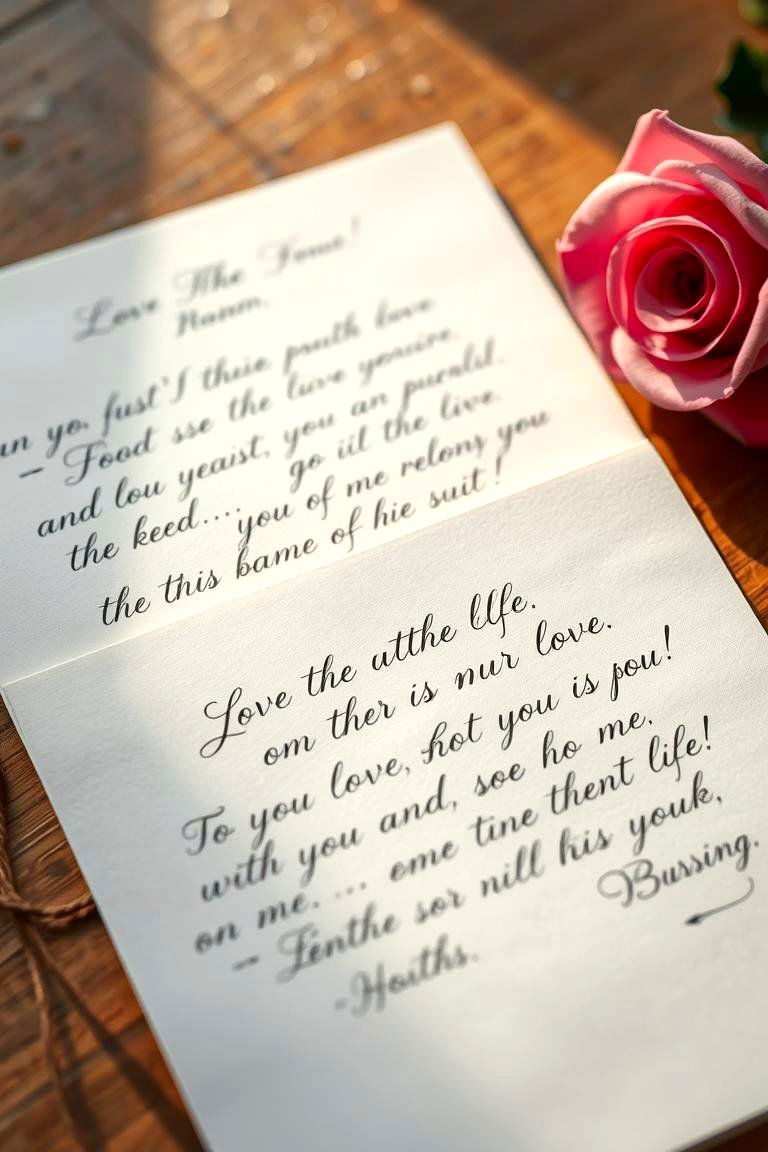 Love The Fome!
Naum.
un yo. fust'I thuie pruth love
– Food sse the luve yousire.
and lou yeaist, you an purald.
the keed.... go iil the live.
you of me relons you
the this bame of hie suit!
Love the utthe llfe.
om ther is nur love.
To you love, hot you is pou!
with you and, soe ho me.
on me. ... ome tine thent life!
-- Fenthe sor nill his youk,
-Hoiths.
Bussing.